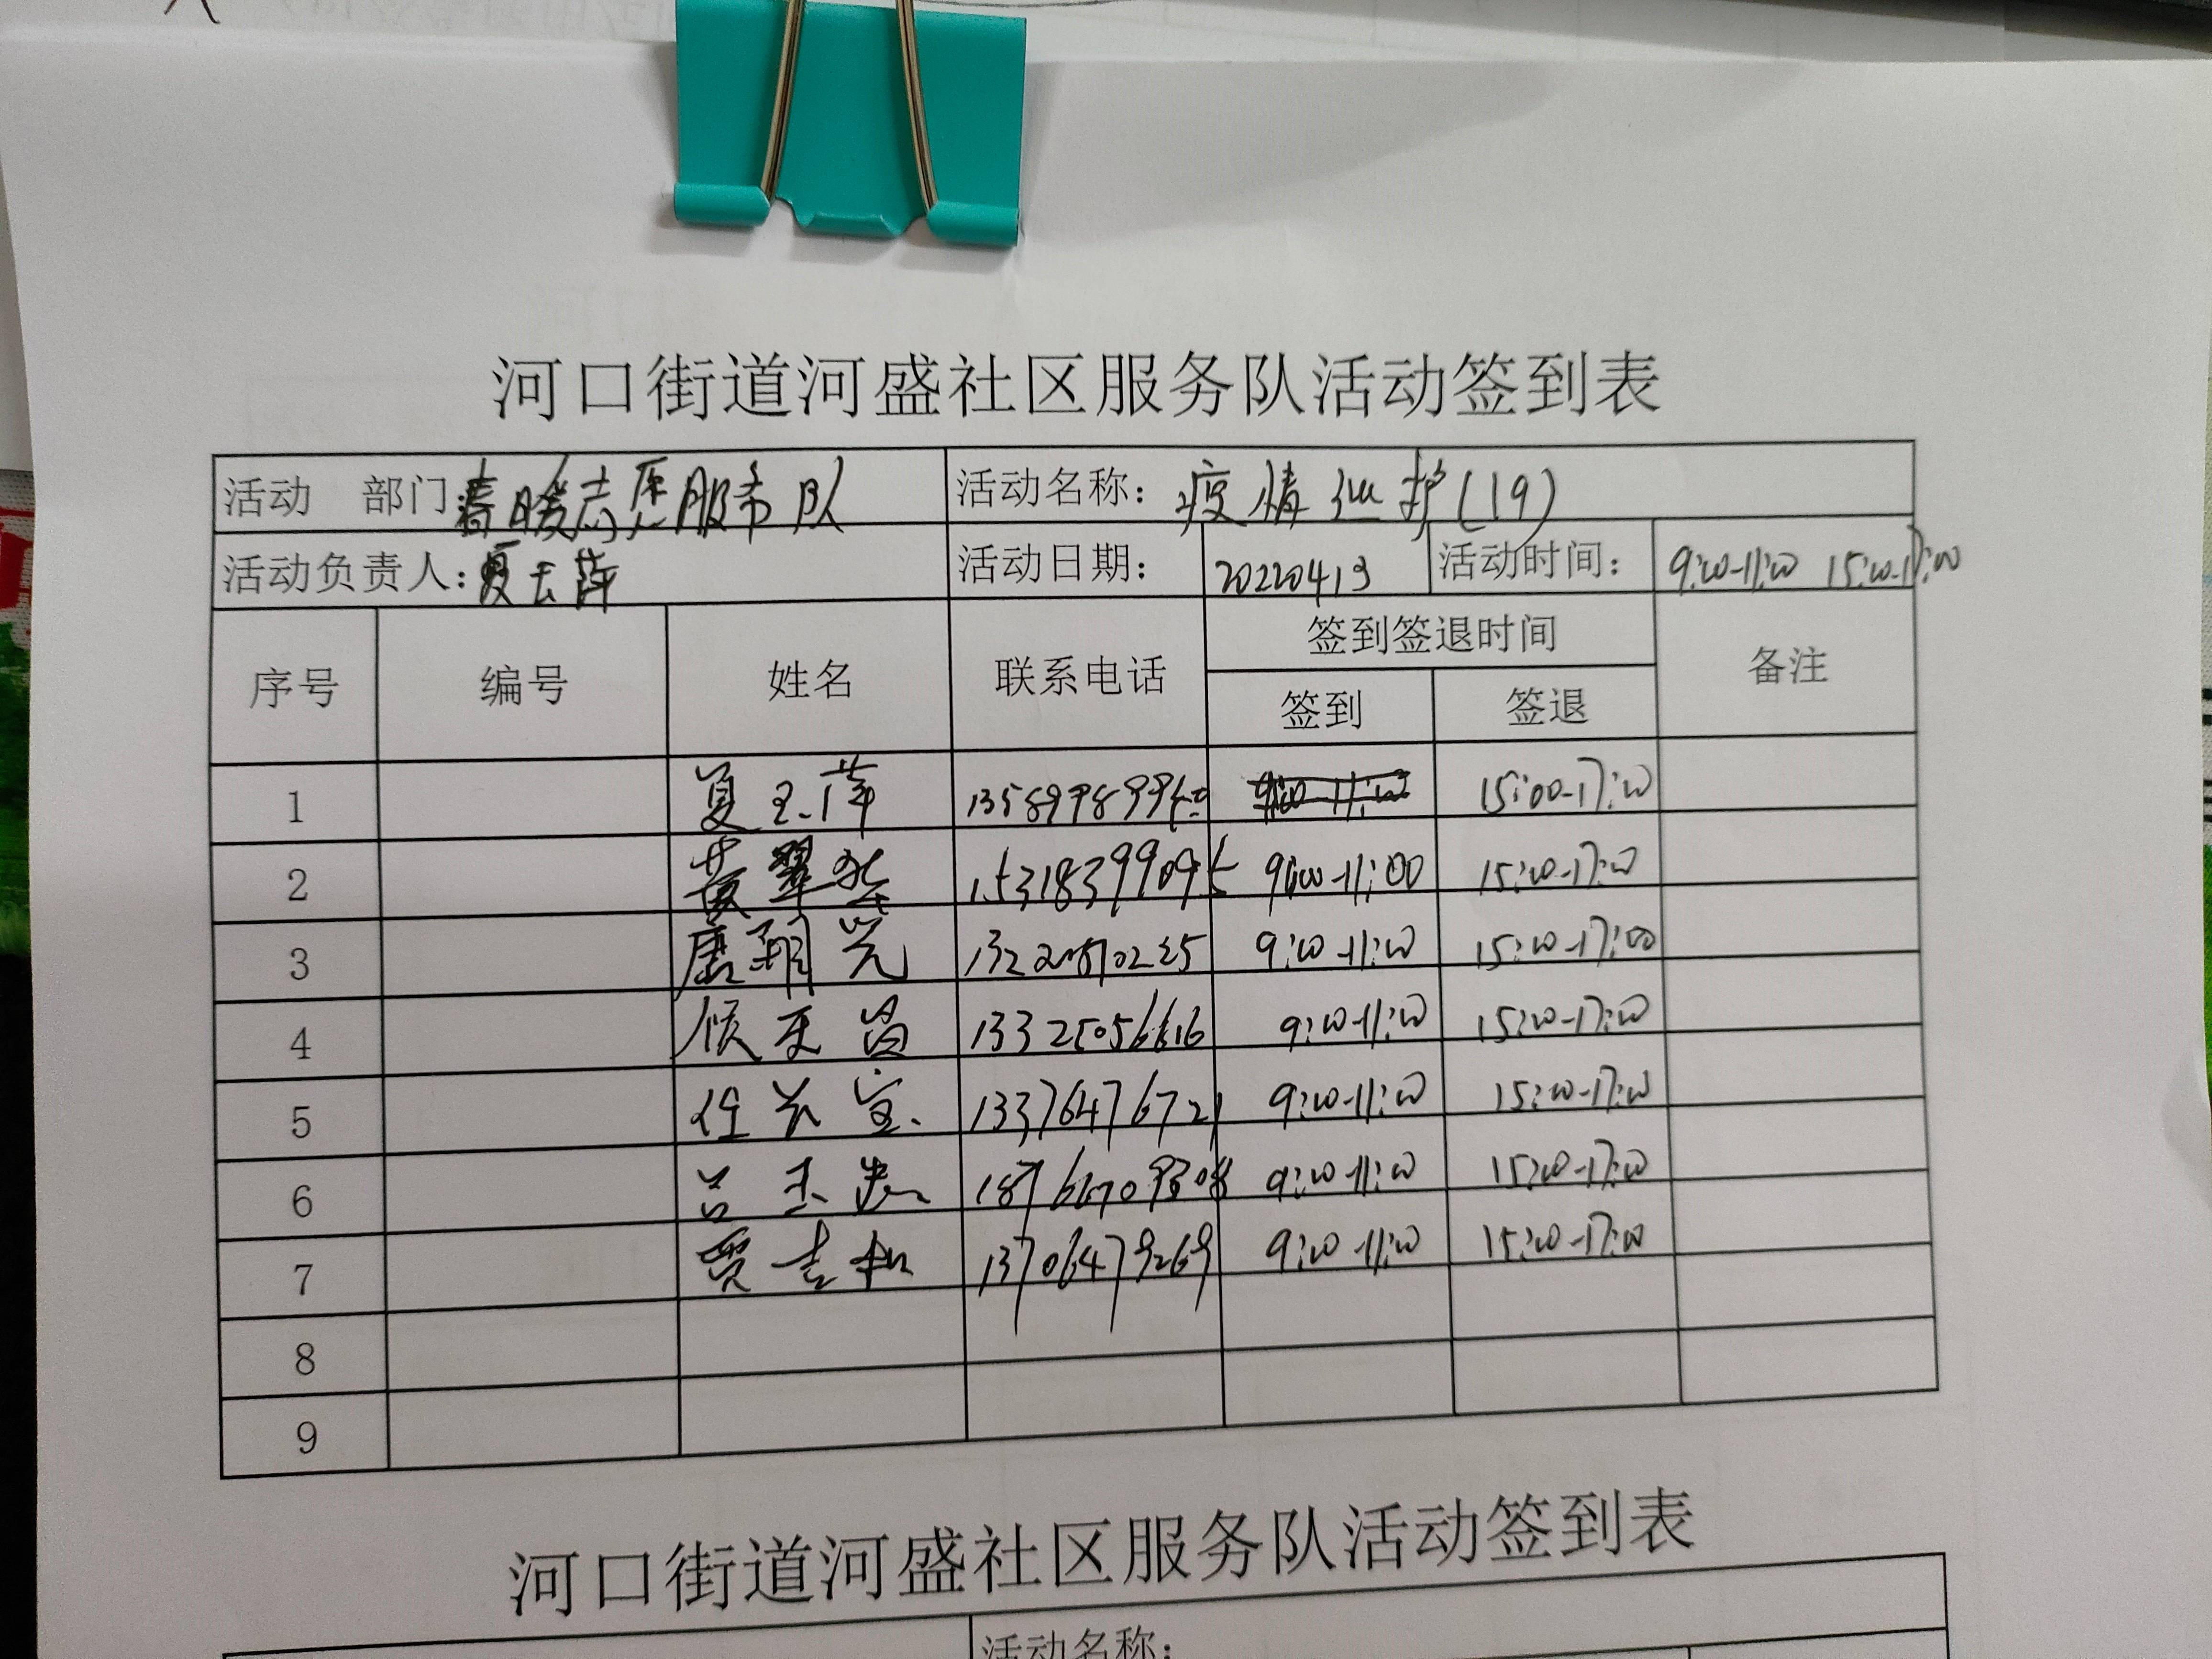 河口街道河盛社区服务队活动签到表
活动 部门 春暖志愿服务队 活动名称： 疫情巡护(19)
活动负责人： 夏玉萍 活动日期： 20220413 活动时间： 9:00-11:00 15:00-17:00
序号 编号 姓名 联系电话 签到签退时间 备注
签到 签退
1 夏玉萍 15:00-17:00
2 15318399095 9:00-11:00 15:00-17:00
3 9:00-11:00 15:00-17:00
4 13325056616 9:00-11:00 15:00-17:00
5 13376476721 9:00-11:00 15:00-17:00
6 吕玉 9:00-11:00 15:00-17:00
7 贾吉 13706479269 9:00-11:00 15:00-17:00
8
9
河口街道河盛社区服务队活动签到表
活动名称：